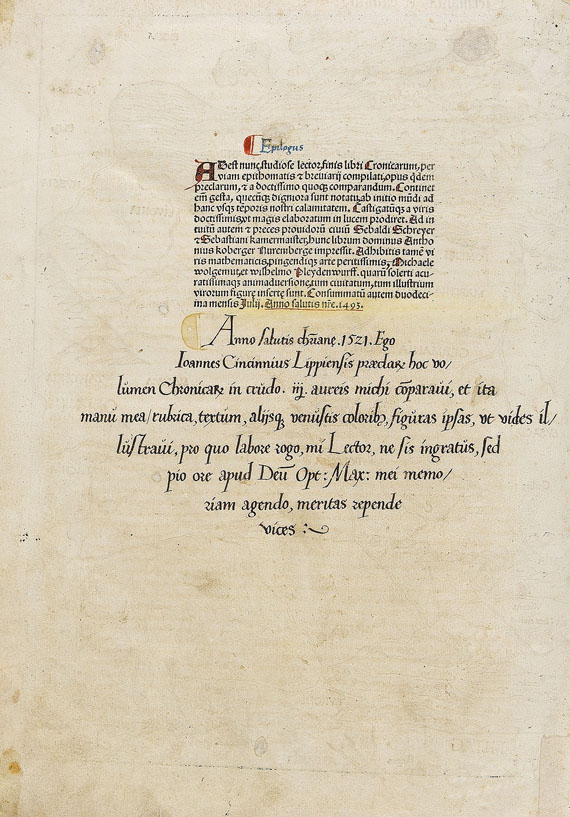 Epilogus
ADest nunc studiose lector finis libri Cronicarum per
viam epithomatis ⁊ breuiarij compilati, opus q̄dem
preclarum, ⁊ a doctissimo quoqꝫ comparandum. Continet
em̄ gesta, quecūqꝫ digniora sunt notatu ab initio mūdi ad
hanc vsqꝫ tēporis nostri calamitatem. Castigatūqꝫ a viris
doctissimis vt magis elaboratum in lucem prodiret. Ad in
tuitū autem ⁊ preces prouidorū ciuiū Sebaldi Schreyer
⁊ Sebastiani kamermaister, hunc librum dominus Antho
nius koberger Nuremberge impressit. Adhibitis tamē vi
ris mathematicis, pingendiqꝫ arte peritissimis, Michaele
wolgemut et wilhelmo Pleydenwurff. quarū solerti acu-
ratissimaqꝫ animaduersione, tum ciuitatum, tum illustrium
virorum figure inserte sunt. Consummatū autem duodeci
ma mensis Julij. Anno salutis nr̄e. 1493.
Anno salutis chr̄iane .1521. Ego
Ioannes Cincinnius Lippiensis præclarꝝ hoc vo/
lumen Chronicaꝝ in crudo. iij. aureis michi cōparaui, et ita
manū mea/rubrica, textum, alijsqꝫ venustis coloribꝫ, figuras ipsas, vt vides il/
lustraui, pro quo labore rogo, mi Lector, ne sis ingratus, sed
pio ore apud Deū Opt: Max: mei memo/
riam agendo, meritas repende
vices :~